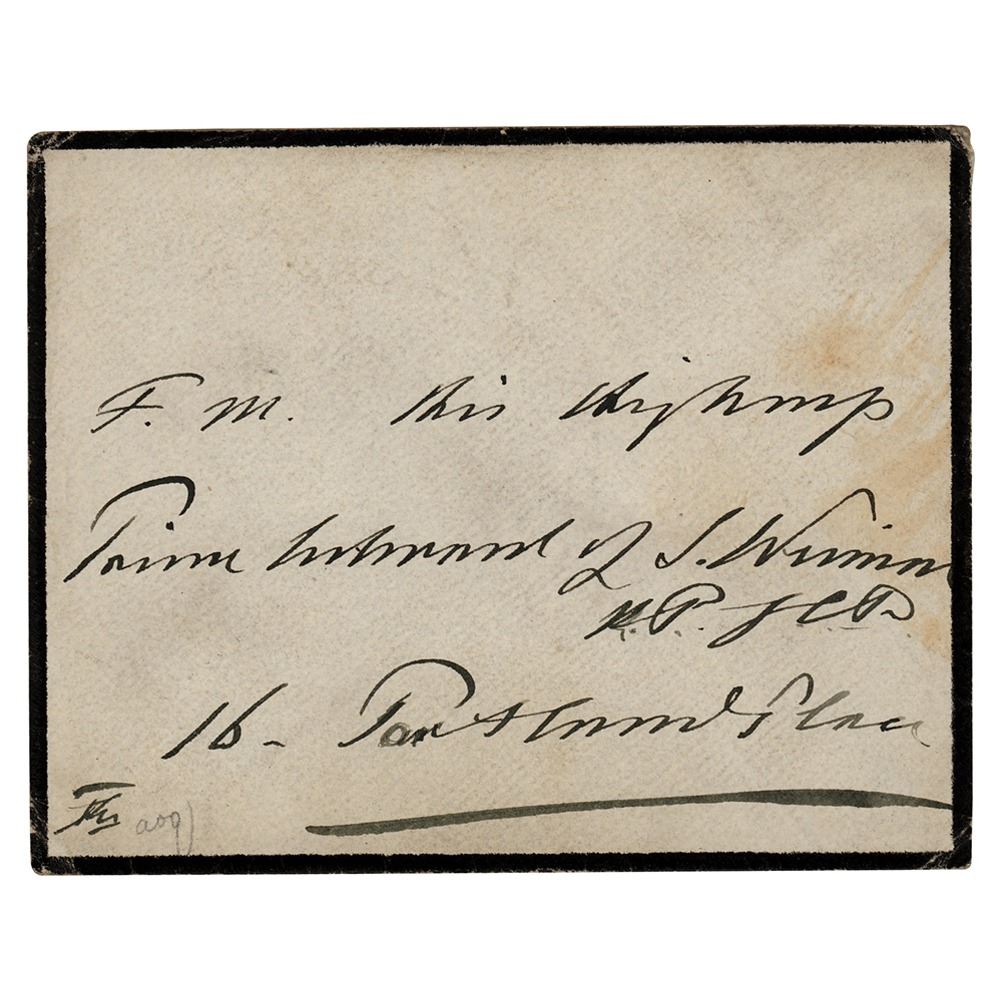 F. M. His Highness
Prince Edward of S. Weimar
K.P. GCB
16 - Portland Place